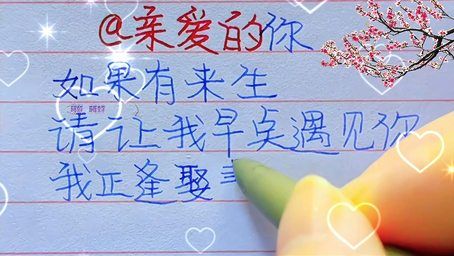 @亲爱的你
如果有来生
请让我早点遇见你
我正逢娶